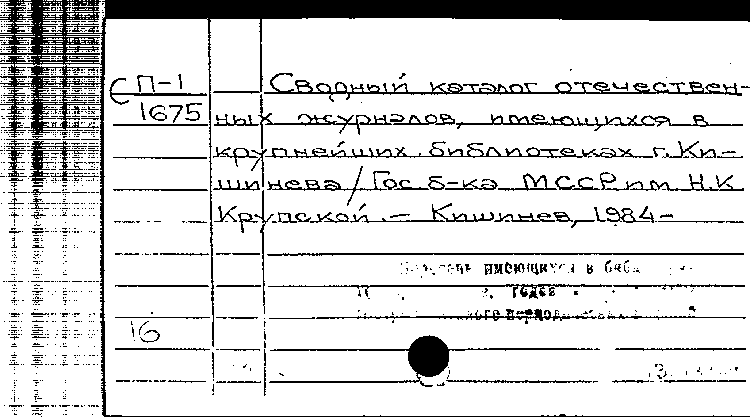 С П-1
1675
Сводный каталог отечествен-
ных журналов, имеющихся в
крупнейших библиотеках г. Ки-
шинева / Гос. б-ка МССР им. Н.К.
Крупской. – Кишинев, 1984–
имеющихся в
годов
16